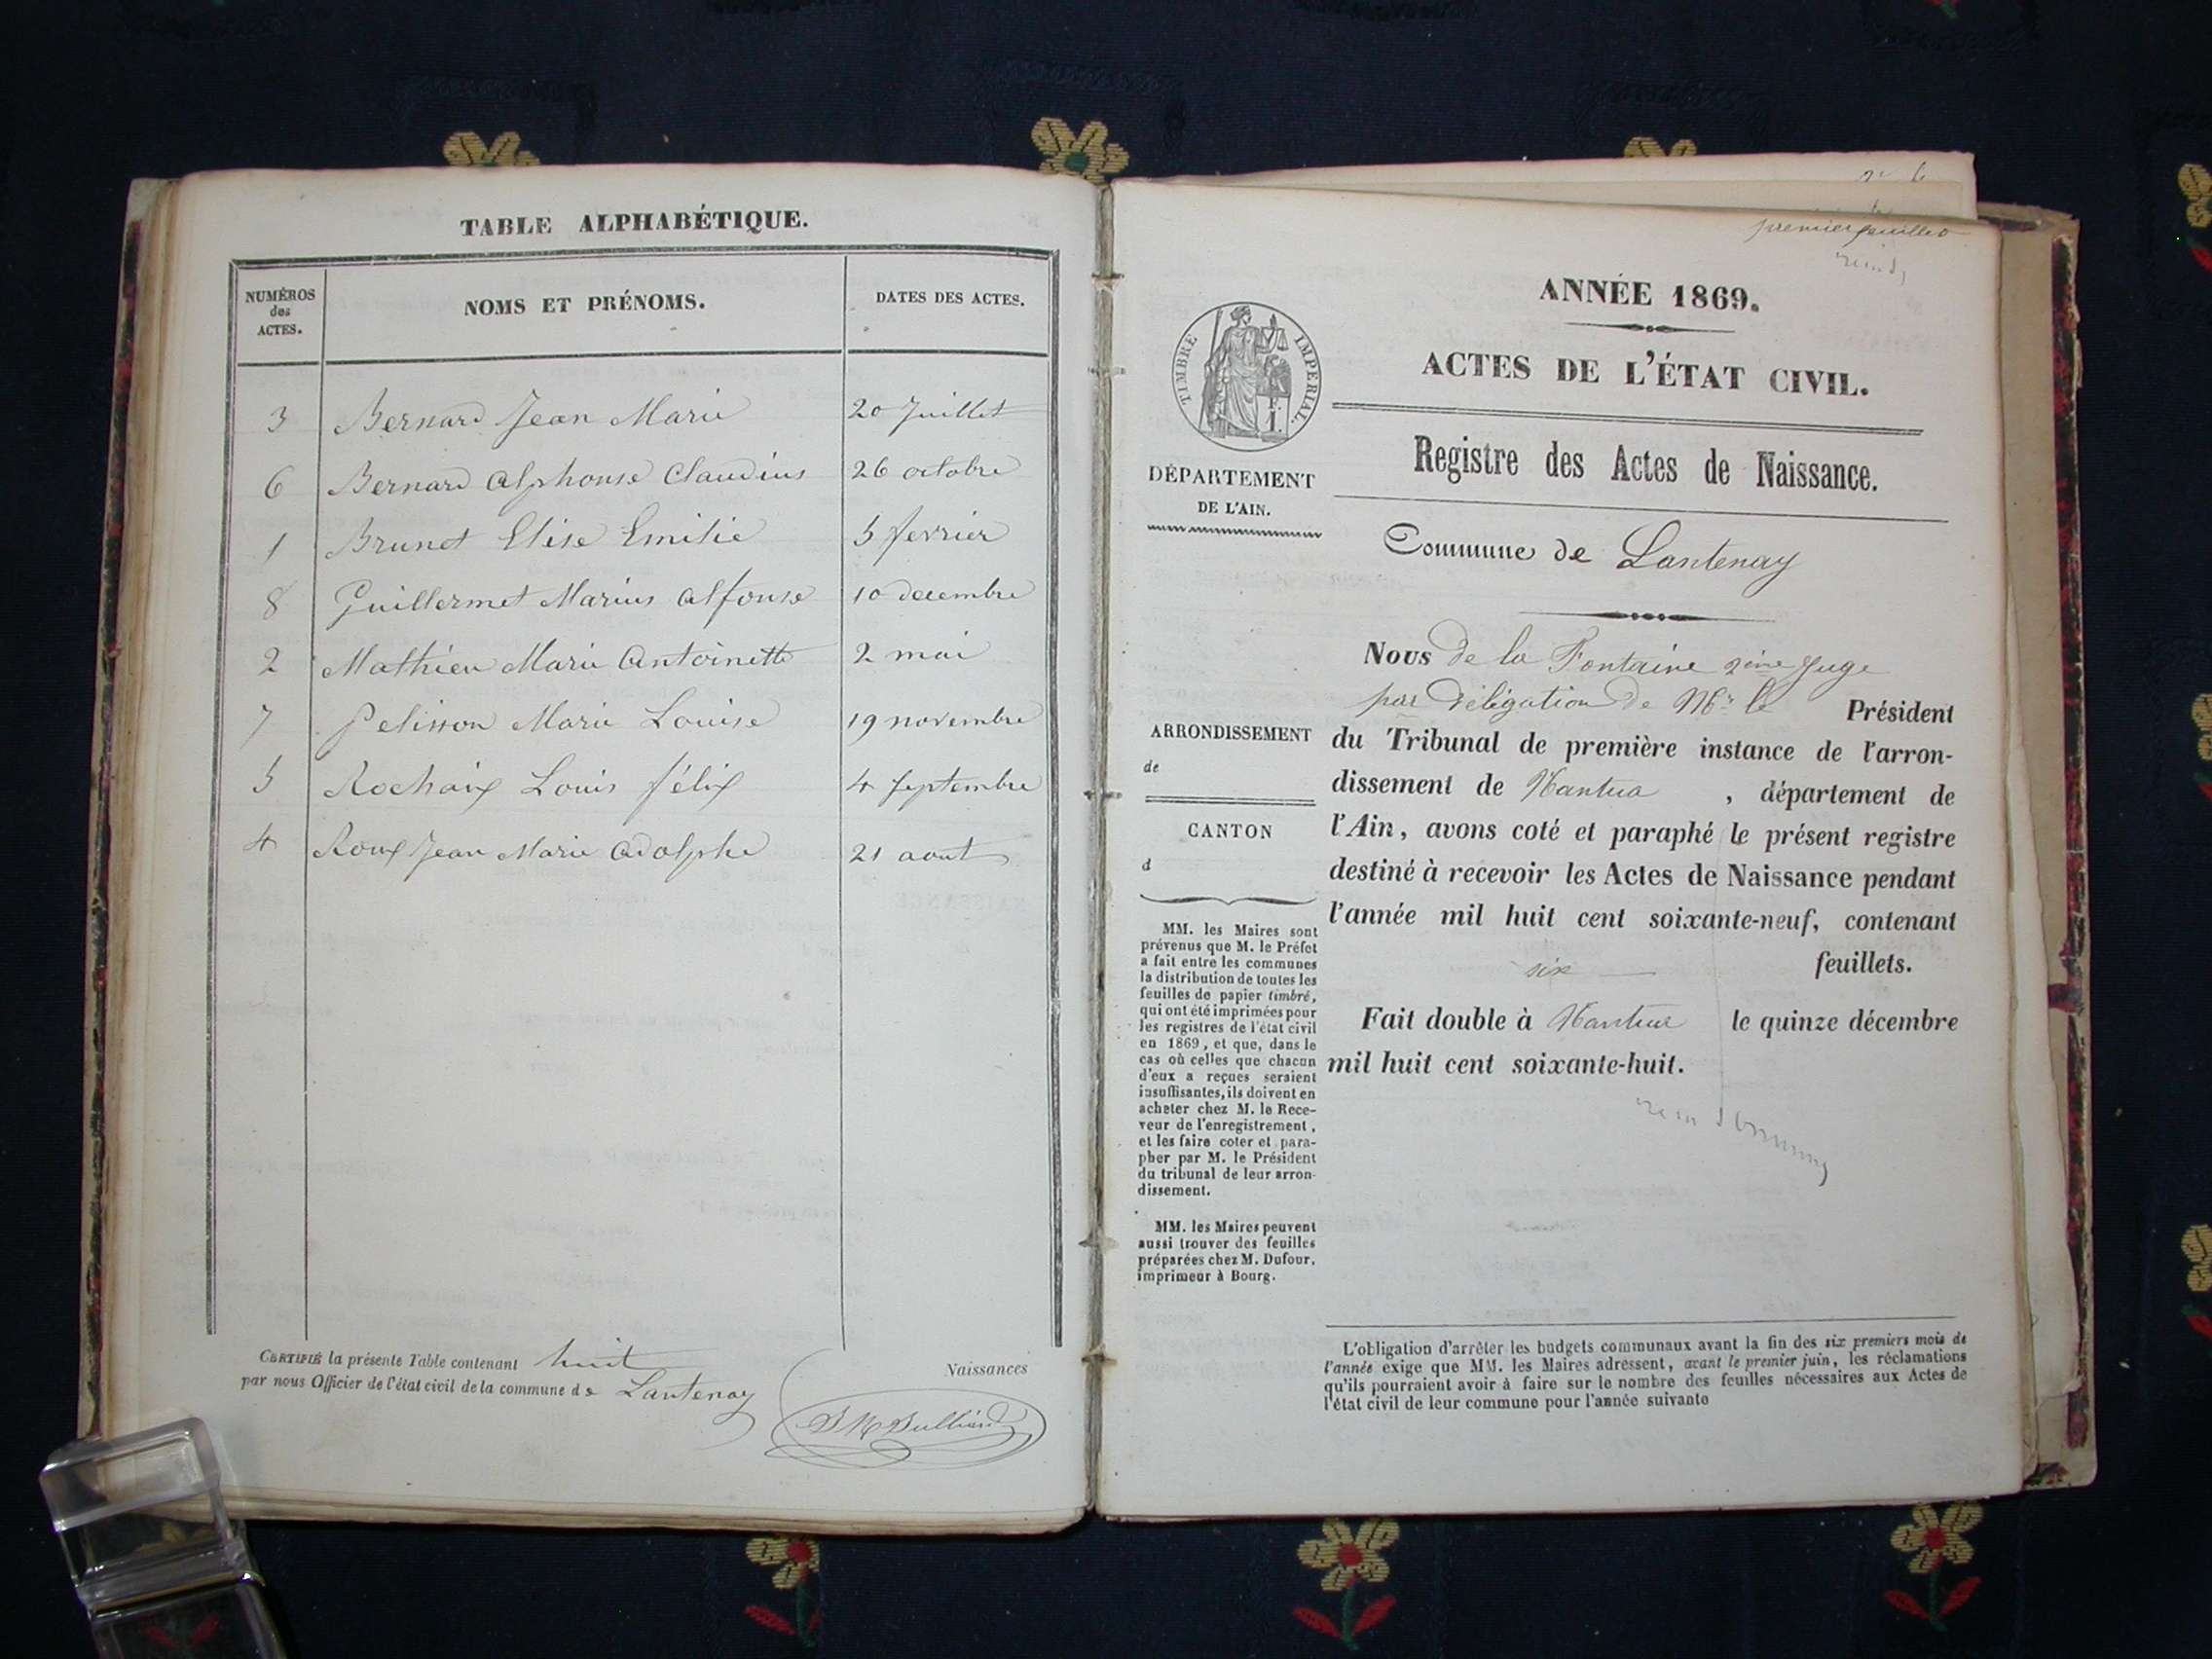 TABLE ALPHABÉTIQUE.
NUMÉROS des ACTES. NOMS ET PRÉNOMS. DATES DES ACTES.
3 Bernard Jean Marie 20 Juillet
6 Bernard Alphonse Claudius 26 octobre
1 Brunet Elise Emilie 5 fevrier
8 Guillermet Marius Alfonse 10 decembre
2 Mathieu Marie Antoinette 2 mai
7 Pelisson Marie Louise 19 novembre
5 Rochaix Louis félix 4 septembre
4 Roux Jean Marie Adolphe 21 aout
CERTIFIÉ la présente Table contenant huit Naissances
par nous Officier de l'état civil de la commune de Lantenay
premier feuillet
ANNÉE 1869.
ACTES DE L'ÉTAT CIVIL.
Registre des Actes de Naissance.
Commune de Lantenay
TIMBRE IMPERIAL.
DÉPARTEMENT
DE L'AIN.
ARRONDISSEMENT
de
CANTON
d
MM. les Maires sont
prévenus que M. le Préfet
a fait entre les communes
la distribution de toutes les
feuilles de papier timbré,
qui ont été imprimées pour
les registres de l'état civil
en 1869, et que, dans le
cas où celles que chacun
d'eux a reçues seraient
insuffisantes, ils doivent en
acheter chez M. le Rece-
veur de l'enregistrement,
et les faire coter et para-
pher par M. le Président
du tribunal de leur arron-
dissement.
MM. les Maires peuvent
aussi trouver des feuilles
préparées chez M. Dufour,
imprimeur à Bourg.
Nous de la Fontaine Juge
par délégation de Mr le Président
du Tribunal de première instance de l'arron-
dissement de Nantua, département de
l'Ain, avons coté et paraphé le présent registre
destiné à recevoir les Actes de Naissance pendant
l'année mil huit cent soixante-neuf, contenant
six feuillets.
Fait double à Nantua le quinze décembre
mil huit cent soixante-huit.
L'obligation d'arrêter les budgets communaux avant la fin des six premiers mois de
l'année exige que MM. les Maires adressent, avant le premier juin, les réclamations
qu'ils pourraient avoir à faire sur le nombre des feuilles nécessaires aux Actes de
l'état civil de leur commune pour l'année suivante